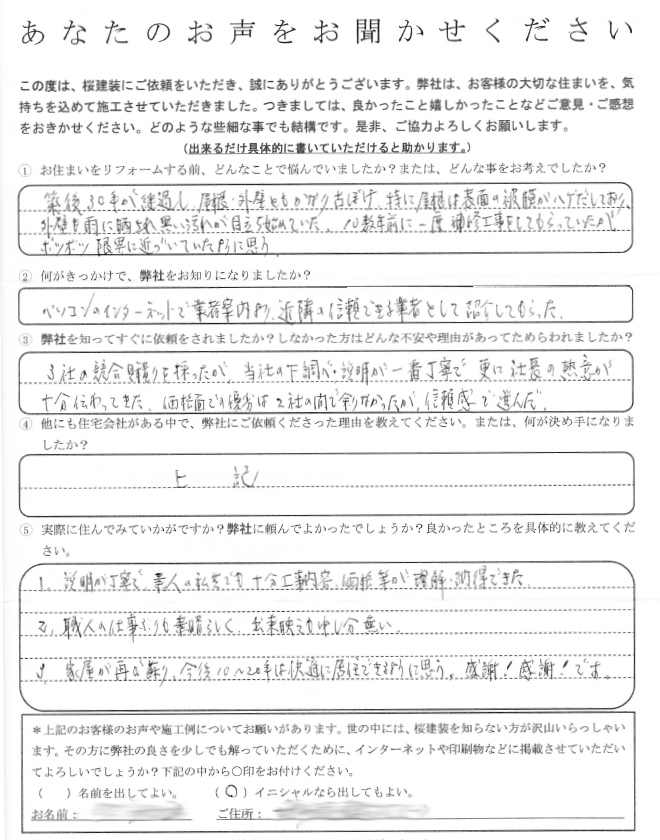 あなたのお声をお聞かせください
この度は、桜建装にご依頼をいただき、誠にありがとうございます。弊社は、お客様の大切な住まいを、気
持ちを込めて施工させていただきました。つきましては、良かったこと嬉しかったことなどご意見・ご感想
をおきかせください。どのような些細な事でも結構です。是非、ご協力よろしくお願いします。
(出来るだけ具体的に書いていただけると助かります。)
① お住まいをリフォームする前、どんなことで悩んでいましたか？または、どんな事をお考えでしたか？
築後30年が経過し、屋根・外壁ともかなり古ぼけ、特に屋根は表面の被膜がハゲだしており、
外壁も雨に晒され黒い汚れが目立ち始めていた。10数年前に一度補修工事をしてもらっていたが
ボツボツ限界に近づいていたように思う
② 何がきっかけで、弊社をお知りになりましたか？
パソコンのインターネットで業者案内より、近隣の信頼できる業者として紹介してもらった。
③ 弊社を知ってすぐに依頼をされましたか？しなかった方はどんな不安や理由があってためらわれましたか？
3社の競合見積りを採ったが、当社の下調べ・説明が一番丁寧で更に社長の熱意が
十分伝わってきた。価格面での優劣は2社の間で余りなかったが、信頼感で選んだ。
④ 他にも住宅会社がある中で、弊社にご依頼くださった理由を教えてください。または、何が決め手になりま
したか？
上記
⑤ 実際に住んでみていかがですか？弊社に頼んでよかったでしょうか？良かったところを具体的に教えてくだ
さい。
1. 説明が丁寧で、素人の私共でも十分工事内容、価格等が理解・納得できた。
2. 職人の仕事ぶりも素晴らしく、出来映えも申し分無い。
3. 家屋が再び蘇り、今後10～20年は快適に居住できるように思う。感謝！感謝！です。
＊上記のお客様のお声や施工例についてお願いがあります。世の中には、桜建装を知らない方が沢山いらっしゃい
ます。その方に弊社の良さを少しでも解っていただくために、インターネットや印刷物などに掲載させていただい
てよろしいでしょうか？下記の中から○印をお付けください。
（ ）名前を出してよい。 （○）イニシャルなら出してもよい。
お名前： ご住所：